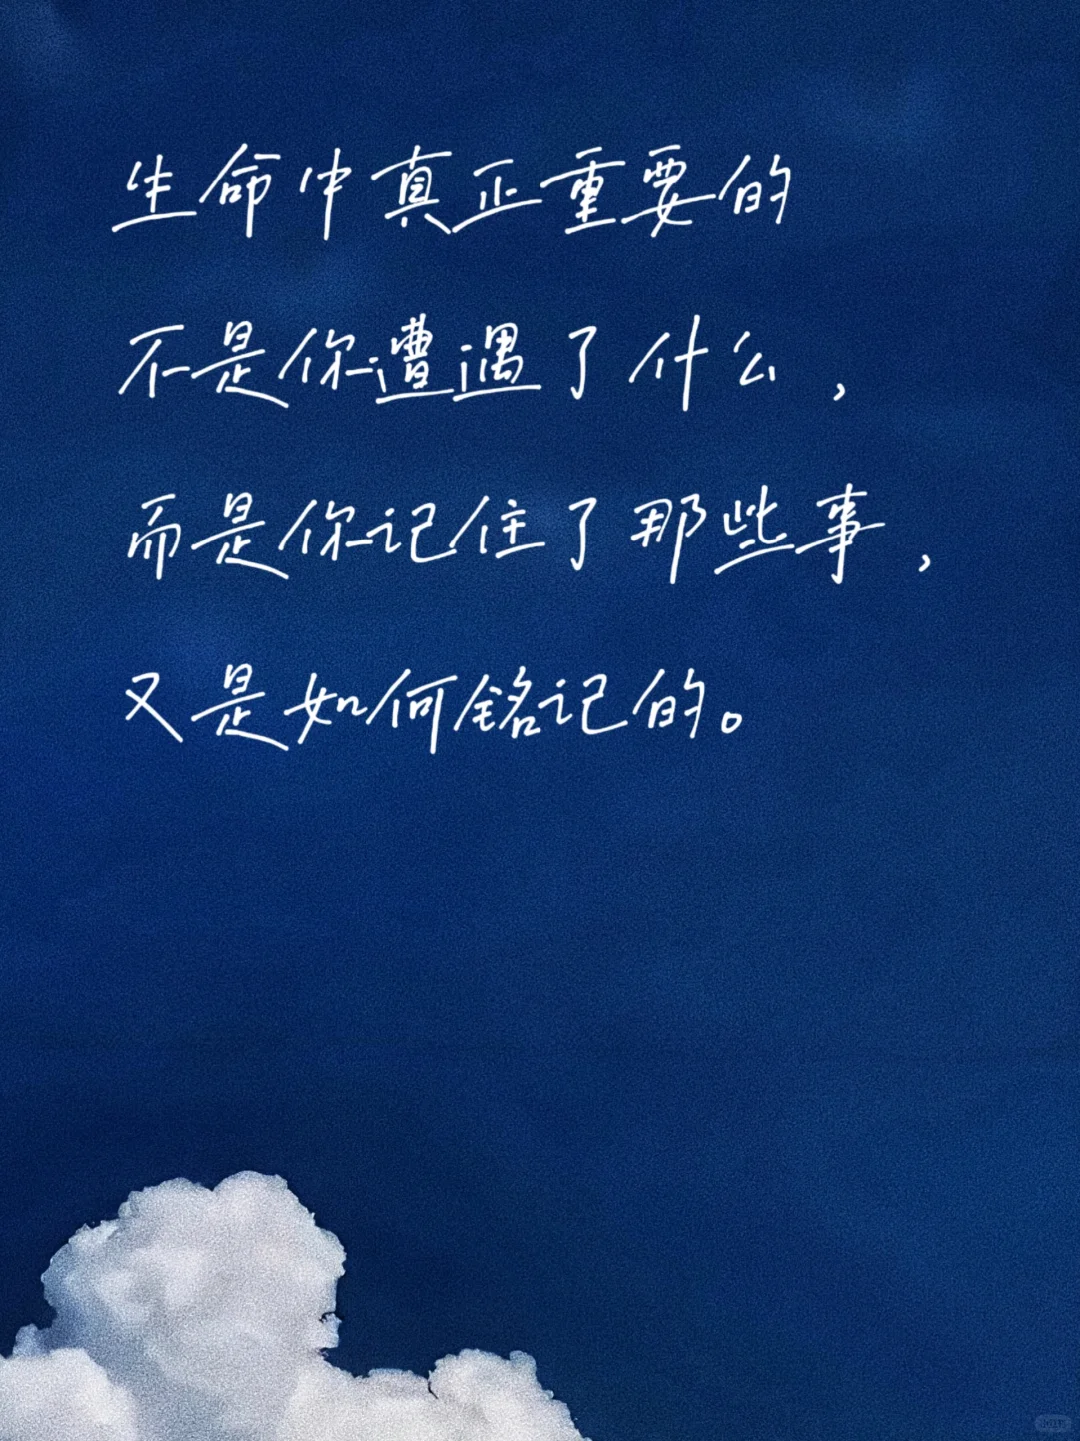 生命中真正重要的
不是你遭遇了什么，
而是你记住了那些事，
又是如何铭记的。